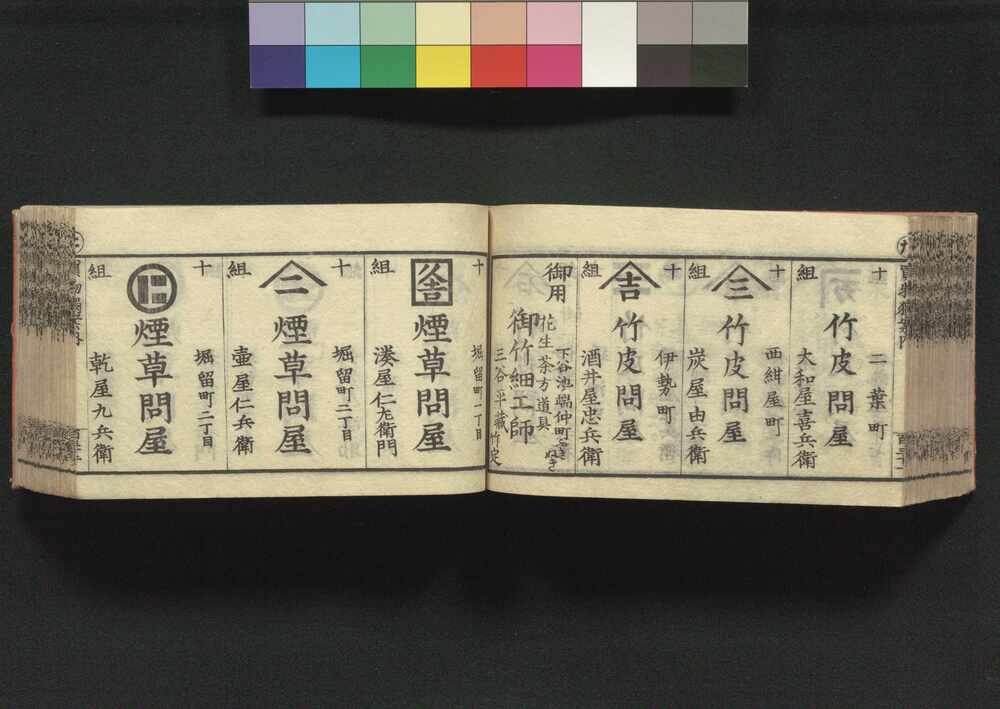 十組
二葉町
竹皮問屋
大和屋喜兵衛
十組
西紺屋町
三
竹皮問屋
炭屋由兵衛
十組
伊勢町
吉
竹皮問屋
酒井屋忠兵衛
御用
下谷池端仲町
花生茶方道具
御竹細工師
三谷平蔵竹定
十組
堀留町二丁目
煙草問屋
湊屋仁左衛門
十組
堀留町二丁目
二
煙草問屋
壷屋仁兵衛
十組
堀留町二丁目
煙草問屋
乾屋九兵衛